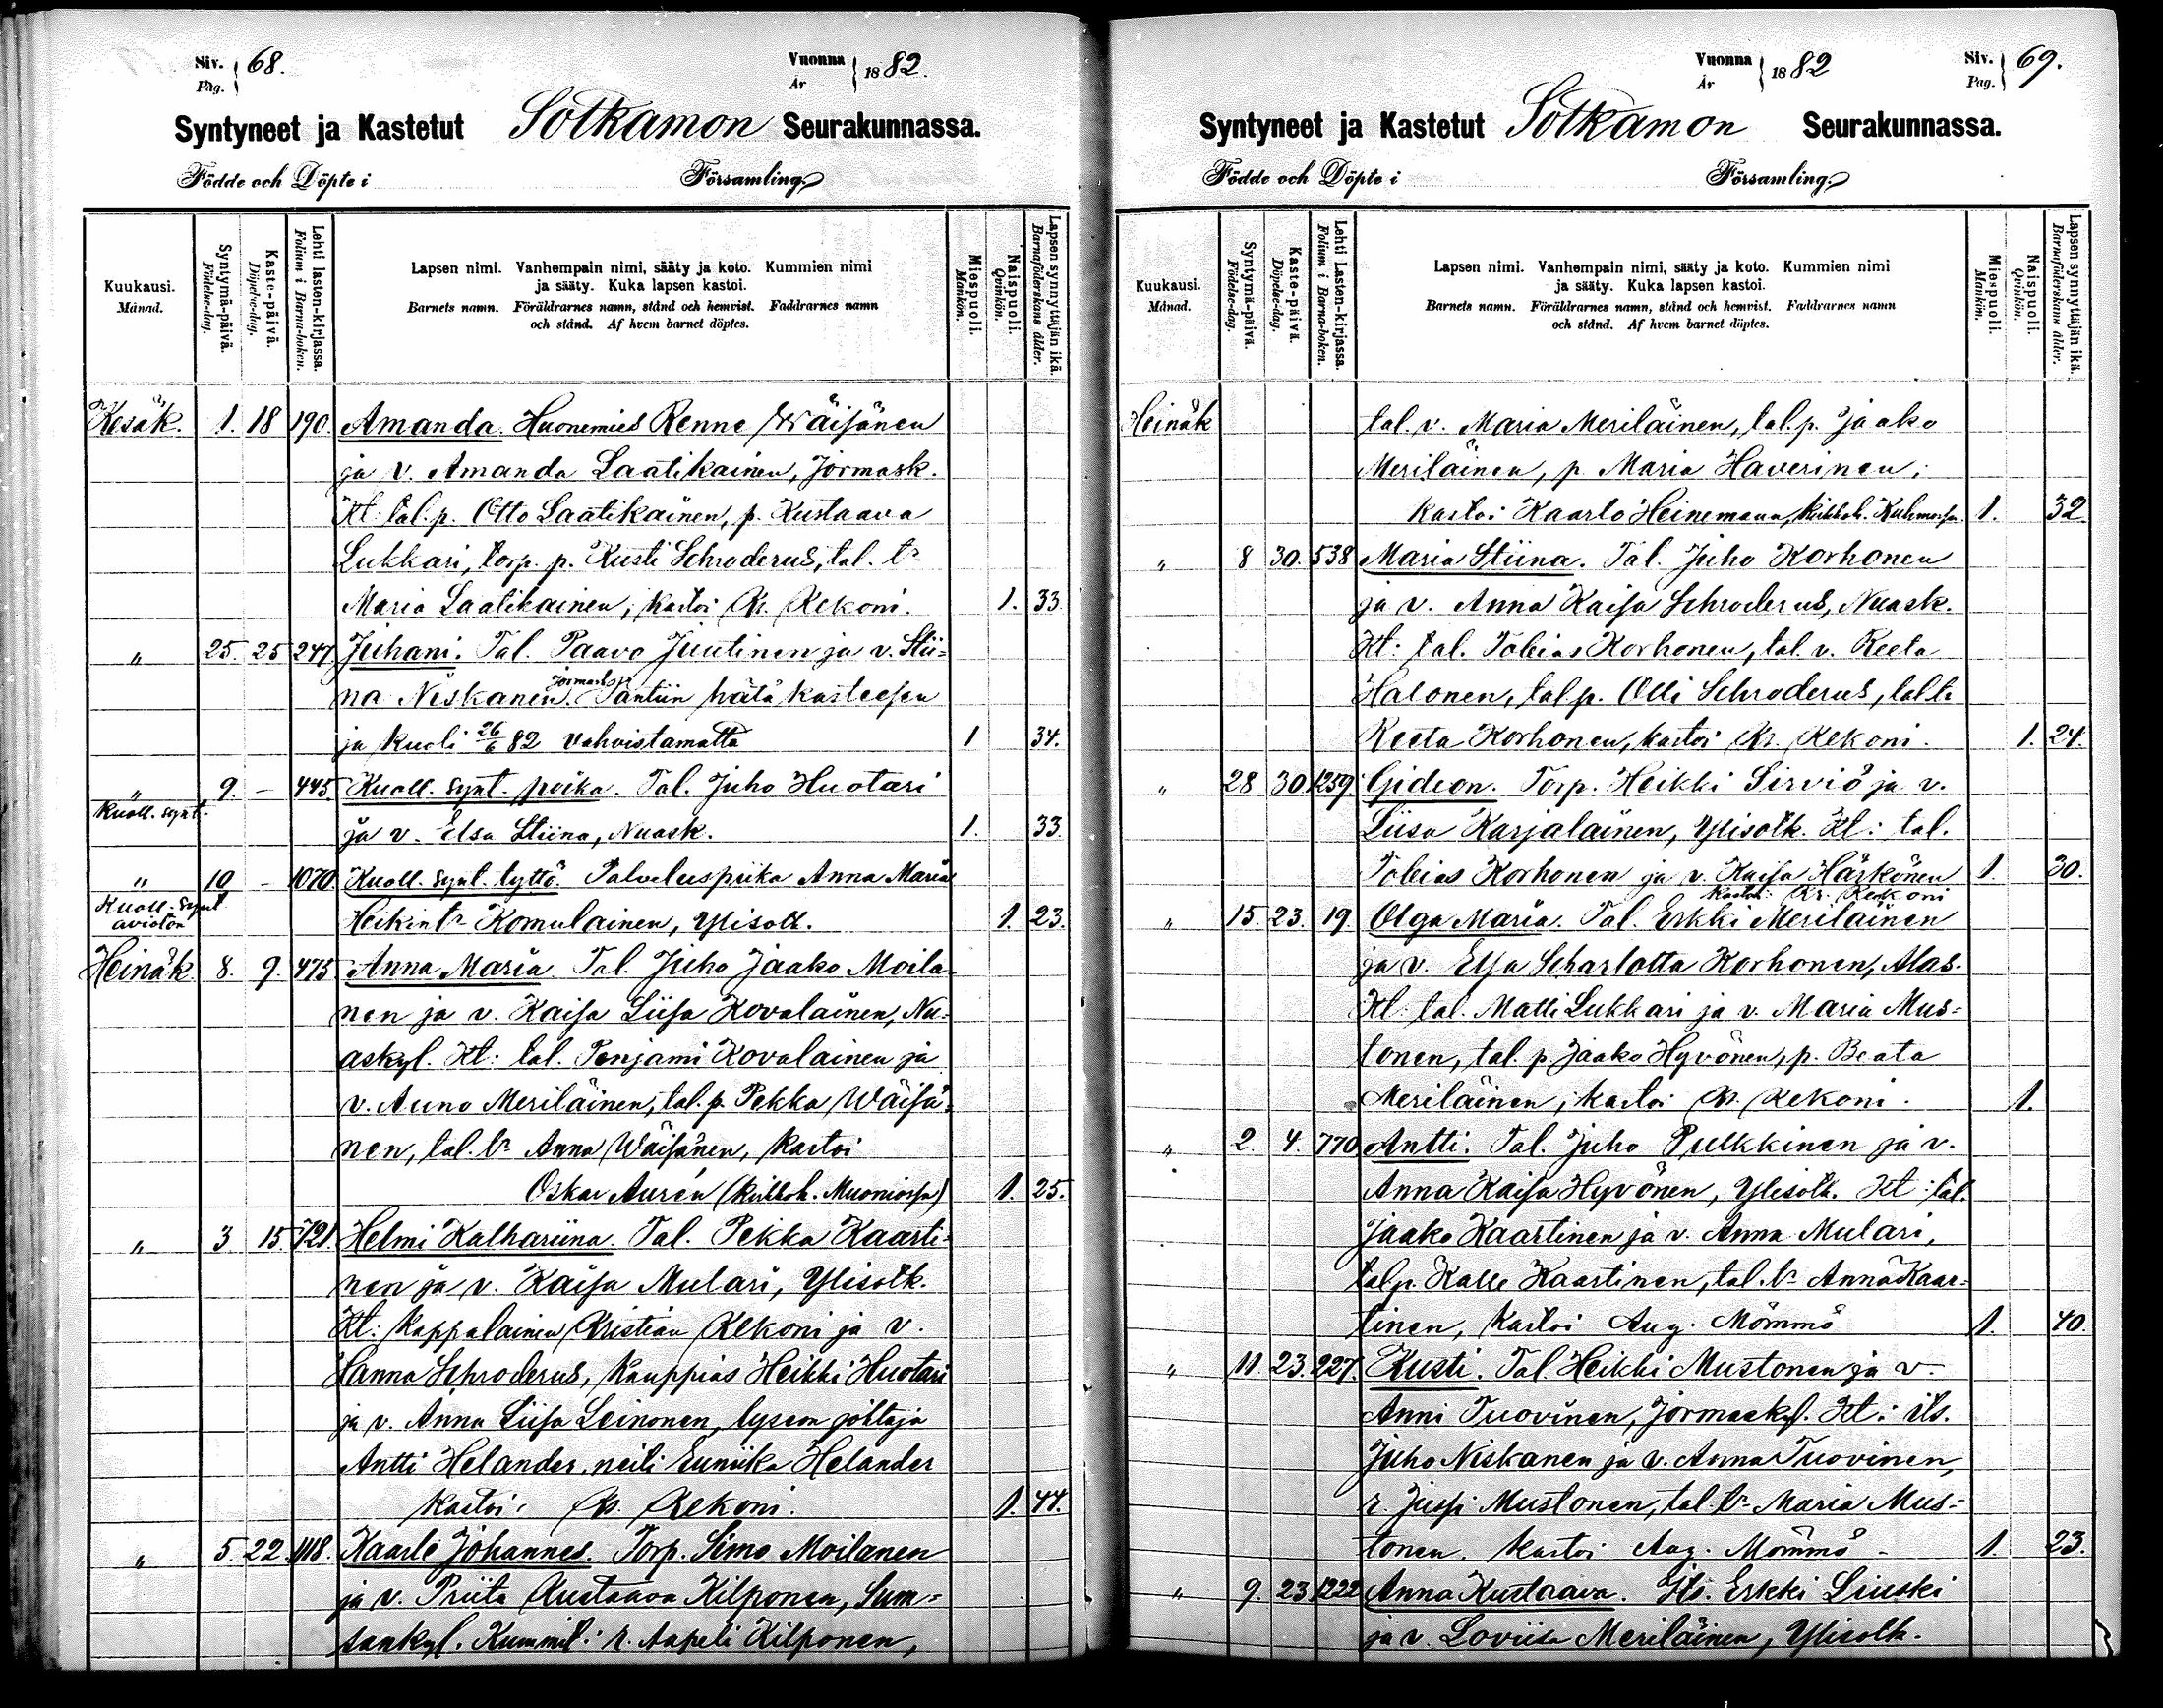 Siv. Pag. 68.
Vuonna År 1882.
Syntyneet ja Kastetut Sotkamon Seurakunnassa.
Födde och Döpte i Församling.
Kuukausi. Månad.
Syntymä-päivä. Födelse-dag.
Kaste-päivä. Döpelse-dag.
Lehti lasten-kirjassa. Folium i Barna-boken.
Lapsen nimi. Vanhempain nimi, sääty ja koto. Kummien nimi
ja sääty. Kuka lapsen kastoi.
Barnets namn. Föräldrarnes namn, stånd och hemvist. Faddrarnes namn
och stånd. Af hvem barnet döptes.
Miespuoli. Mankön.
Naispuoli. Qvinkön.
Lapsen synnyttäjän ikä. Barnaföderskans ålder.
Kesäk. 1. 18 190. Amanda. Huonemies Renne Wäisänen
ja v. Amanda Laatikainen, Jormask.
Kt: tal. p. Otto Laatikainen, p. Kustaava
Lukkari, torp. p. Kusti Schroderus, tal. tr
Maria Laatikainen; kastoi Kr. Rekoni. 1. 33.
" 25. 25 247 Juhani. Tal. Paavo Juutinen ja v. Stii=
na Niskanen. Jormask. Pantiin hätä kasteesen
ja kuoli 26/6 82 vahvistamatta 1 34.
" 9. - 445. Kuoll. synt. poika. Tal. Juho Huotari
Kuoll. synt. ja v. Elsa Stiina, Nuask. 1. 33.
" 10 - 1070. Kuoll. synt. tyttö. Palveluspiika Anna Maria
Kuoll. synt. avioton Heikin tr Komulainen, Ylisotk. 1. 23.
Heinäk. 8. 9. 475 Anna Maria. Tal. Juho Jaako Moila
nen ja v. Kaisa Liisa Kovalainen, Nu=
askyl. Kt: tal. Penjami Kovalainen ja
v. Auno Meriläinen, tal. p. Pekka Wäisä=
nen, tal. tr Anna Wäisänen, kastoi
Oskar Aurén (kirkkoh. Muoniossa) 1. 25.
" 3 15. 721. Helmi Kathariina. Tal. Pekka Kaarti=
nen ja v. Kaisa Mulari, Ylisotk.
Kt: Kappalainen Kristian Rekoni ja v.
Hanna Schroderus, Kauppias Heikki Huotari
ja v. Anna Liisa Leinonen, lyseon johtaja
Antti Helander, neiti Euniika Helander
kastoi, Kr. Rekoni. 1. 44.
" 5 22. 1118. Kaarle Johannes. Torp. Simo Moilanen
ja v. Priita Kustaava Kilponen, Sum=
sankyl. Kummit: r. Aapeli Kilponen,
Vuonna År 1882
Siv. Pag. 69.
Syntyneet ja Kastetut Sotkamon Seurakunnassa.
Födde och Döpte i Församling.
Kuukausi. Månad.
Syntymä-päivä. Födelse-dag.
Kaste-päivä. Döpelse-dag.
Lehti Lasten-kirjassa. Folium i Barna-boken.
Lapsen nimi. Vanhempain nimi, sääty ja koto. Kummien nimi
ja sääty. Kuka lapsen kastoi.
Barnets namn. Föräldrarnes namn, stånd och hemvist. Faddrarnes namn
och stånd. Af hvem barnet döptes.
Miespuoli. Mankön.
Naispuoli. Qvinkön.
Lapsen synnyttäjän ikä. Barnaföderskans ålder.
Heinäk tal. v. Maria Meriläinen, tal. p. Jaako
Meriläinen, p. Maria Haverinen;
kastoi Kaarlo Heinemann, kirkkoh. Kuhmossa. 1. 32
" 8 30. 538 Maria Stiina. Tal. Juho Korhonen
ja v. Anna Kaisa Schroderus, Nuask.
Kt: tal. Tobias Korhonen, tal. v. Reeta
Halonen, tal p. Olli Schroderus, tal tr
Reeta Korhonen, kastoi Kr. Rekoni. 1. 24.
" 28 30 1259 Gideon. Torp. Heikki Sirviö ja v.
Liisa Karjalainen, Ylisotk. Kt: tal.
Tobias Korhonen ja v. Kaisa Härkönen 1. 30.
kastoi: Kr. Rekoni
" 15. 23. 19. Olga Maria. Tal. Erkki Meriläinen
ja v. Elsa Scharlotta Korhonen, Alas.
Kt: tal. Matti Lukkari ja v. Maria Mus=
tonen, tal. p. Jaako Hyvönen, p. Beata
Meriläinen; kastoi Kr. Rekoni. 1.
" 2. 4. 770 Antti. Tal. Juho Pulkkinen ja v.
Anna Kaisa Hyvönen, Ylisotk. Kt: tal.
Jaako Kaartinen ja v. Anna Mulari,
tal p. Kalle Kaartinen, tal. tr Anna Kaar=
tinen, kastoi Aug. Mömmö 1. 40.
" 11. 23. 227. Kusti. Tal. Heikki Mustonen ja v.
Anni Tuovinen, Jormaskyl. Kt: its.
Juho Niskanen ja v. Anna Tuovinen,
r. Jussi Mustonen, tal. tr Maria Mus=
tonen. kastoi Aug. Mömmö - 1. 23.
" 9. 23 1222 Anna Kustaava. Its. Erkki Liuski
ja v. Loviisa Meriläinen, Ylisotk.